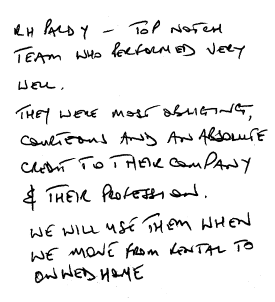 RH PARDY - TOP NOTCH
TEAM WHO PERFORMED VERY
WELL.
THEY WERE MOST OBLIGING,
COURTEOUS AND AN ABSOLUTE
CREDIT TO THEIR COMPANY
& THEIR PROFESSION.
WE WILL USE THEM WHEN
WE MOVE FROM RENTAL TO
OWNED HOME